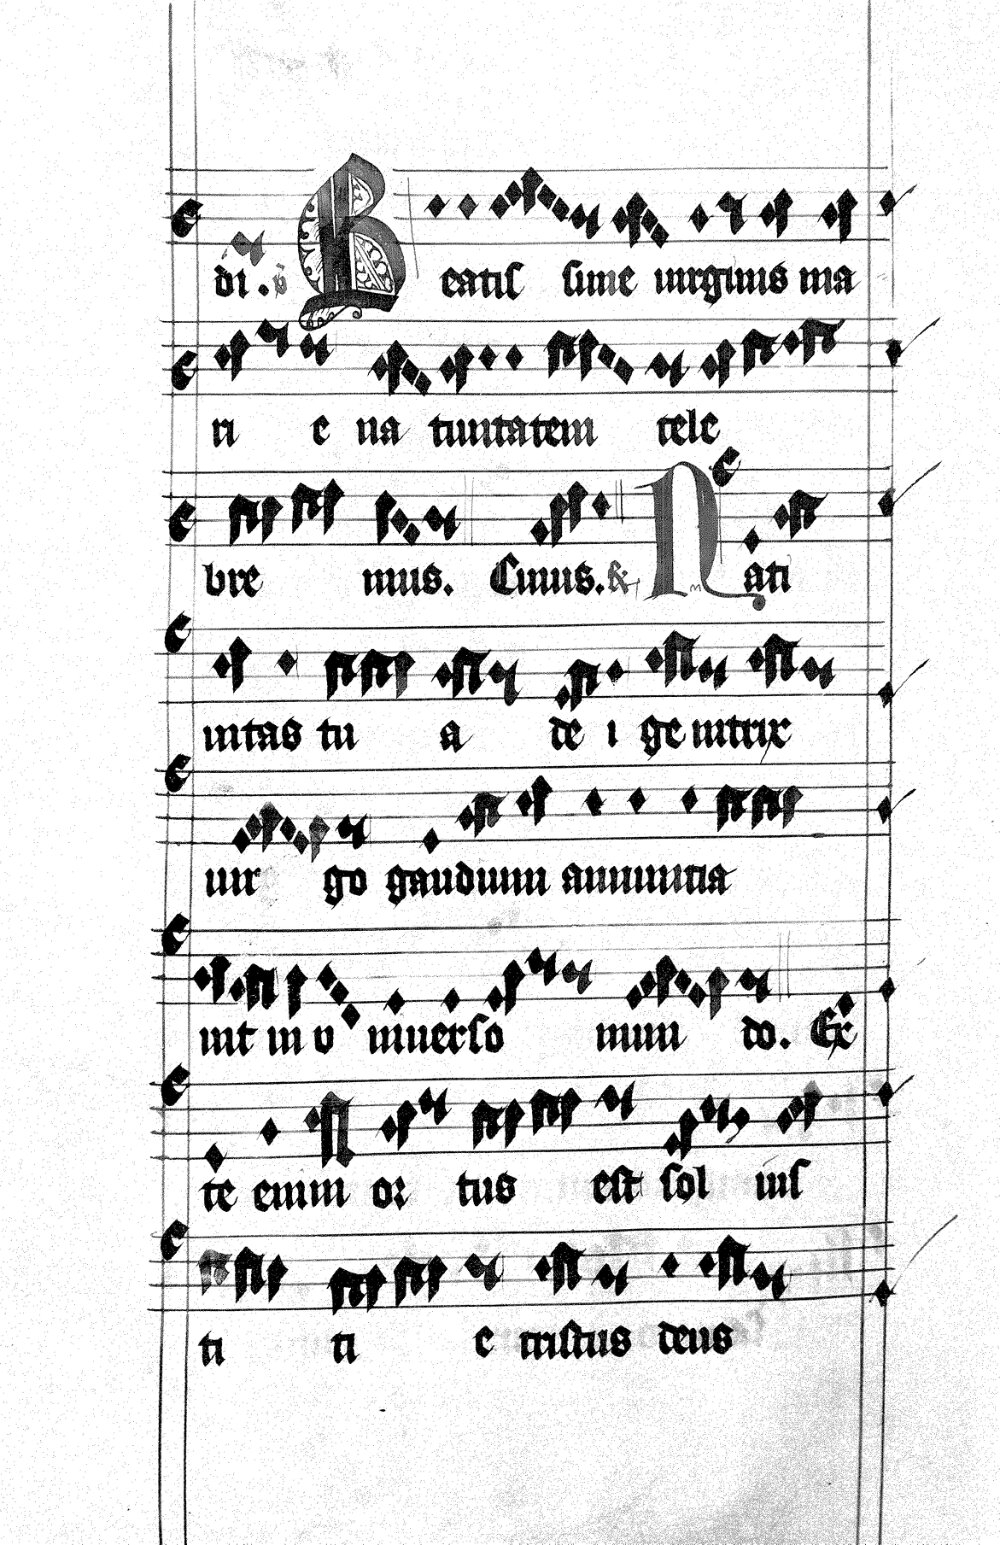 di. ℣ Beatissime virginis ma
ri e na tiuitatem cele
bre mus. Cuius. & Nati
uitas tu a de i genitrix
uir go gaudium annuntia
uit in v niuerso mun do. Ex
te enim or tus est sol ius
ti ti e cristus deus